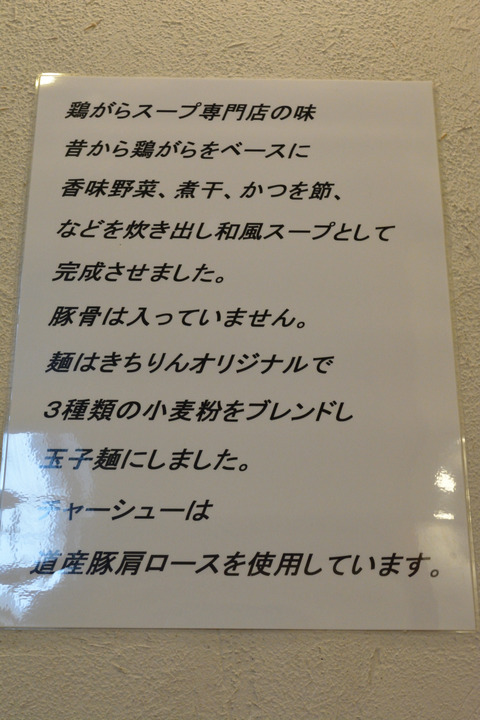 鶏がらスープ専門店の味
昔から鶏がらをベースに
香味野菜、煮干、かつを節、
などを炊き出し和風スープとして
完成させました。
豚骨は入っていません。
麺はきちりんオリジナルで
３種類の小麦粉をブレンドし
玉子麺にしました。
チャーシューは
道産豚肩ロースを使用しています。